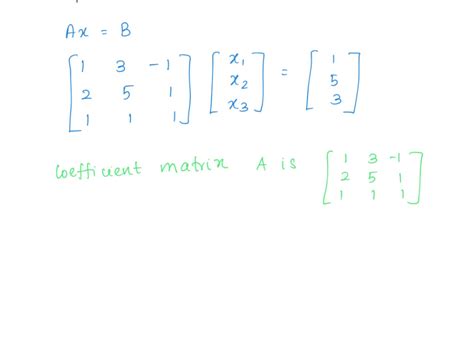 Ax = B
[1 3 -1
2 5 1
1 1 1] [x₁
x₂
x₃] = [1
5
3]
Coefficient matrix A is [1 3 -1
2 5 1
1 1 1]